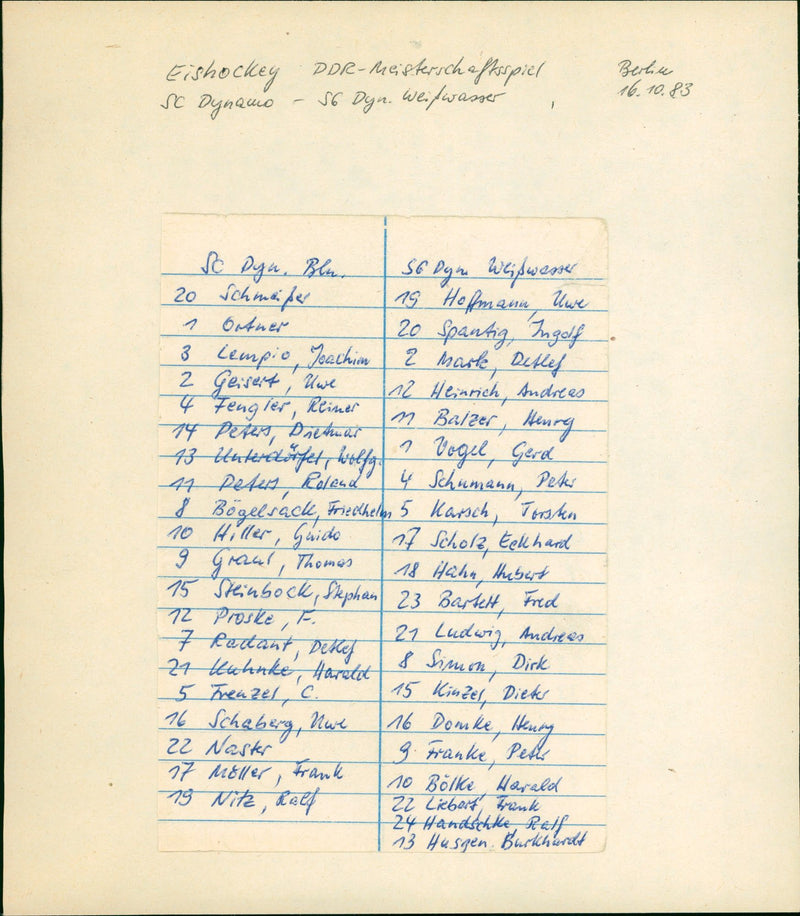 Eishockey DDR-Meisterschaftsspiel Berlin
SC Dynamo - SG Dyn. Weißwasser, 16.10.83
SC Dyn. Bln.
20 Schmeißer
1 Ortner
3 Lempio, Joachim
2 Geisert, Uwe
4 Fengler, Reiner
14 Peters, Dietmar
13 Unterdörfel, Wolfg.
11 Peters, Roland
8 Bögelsack, Friedhelm
10 Hiller, Guido
9 Graul, Thomas
15 Steinbock, Stephan
12 Proske, F.
7 Radant, Detlef
21 Kuhnke, Harald
5 Frenzel, C.
16 Schaberg, Uwe
22 Naster
17 Möller, Frank
19 Nitz, Ralf
SG Dyn Weißwasser
19 Hoffmann, Uwe
20 Spantig, Ingolf
2 Mark, Detlef
12 Heinrich, Andreas
11 Balzer, Henry
1 Vogel, Gerd
4 Schumann, Peter
5 Karsch, Torsten
17 Scholz, Eckhard
18 Hahn, Hubert
23 Bartell, Fred
21 Ludwig, Andreas
8 Simon, Dirk
15 Kinzel, Dieter
16 Domke, Henry
9 Franke, Peter
10 Bölke, Harald
22 Liebert, Frank
24 Handschke, Ralf
13 Husgen, Burkhardt